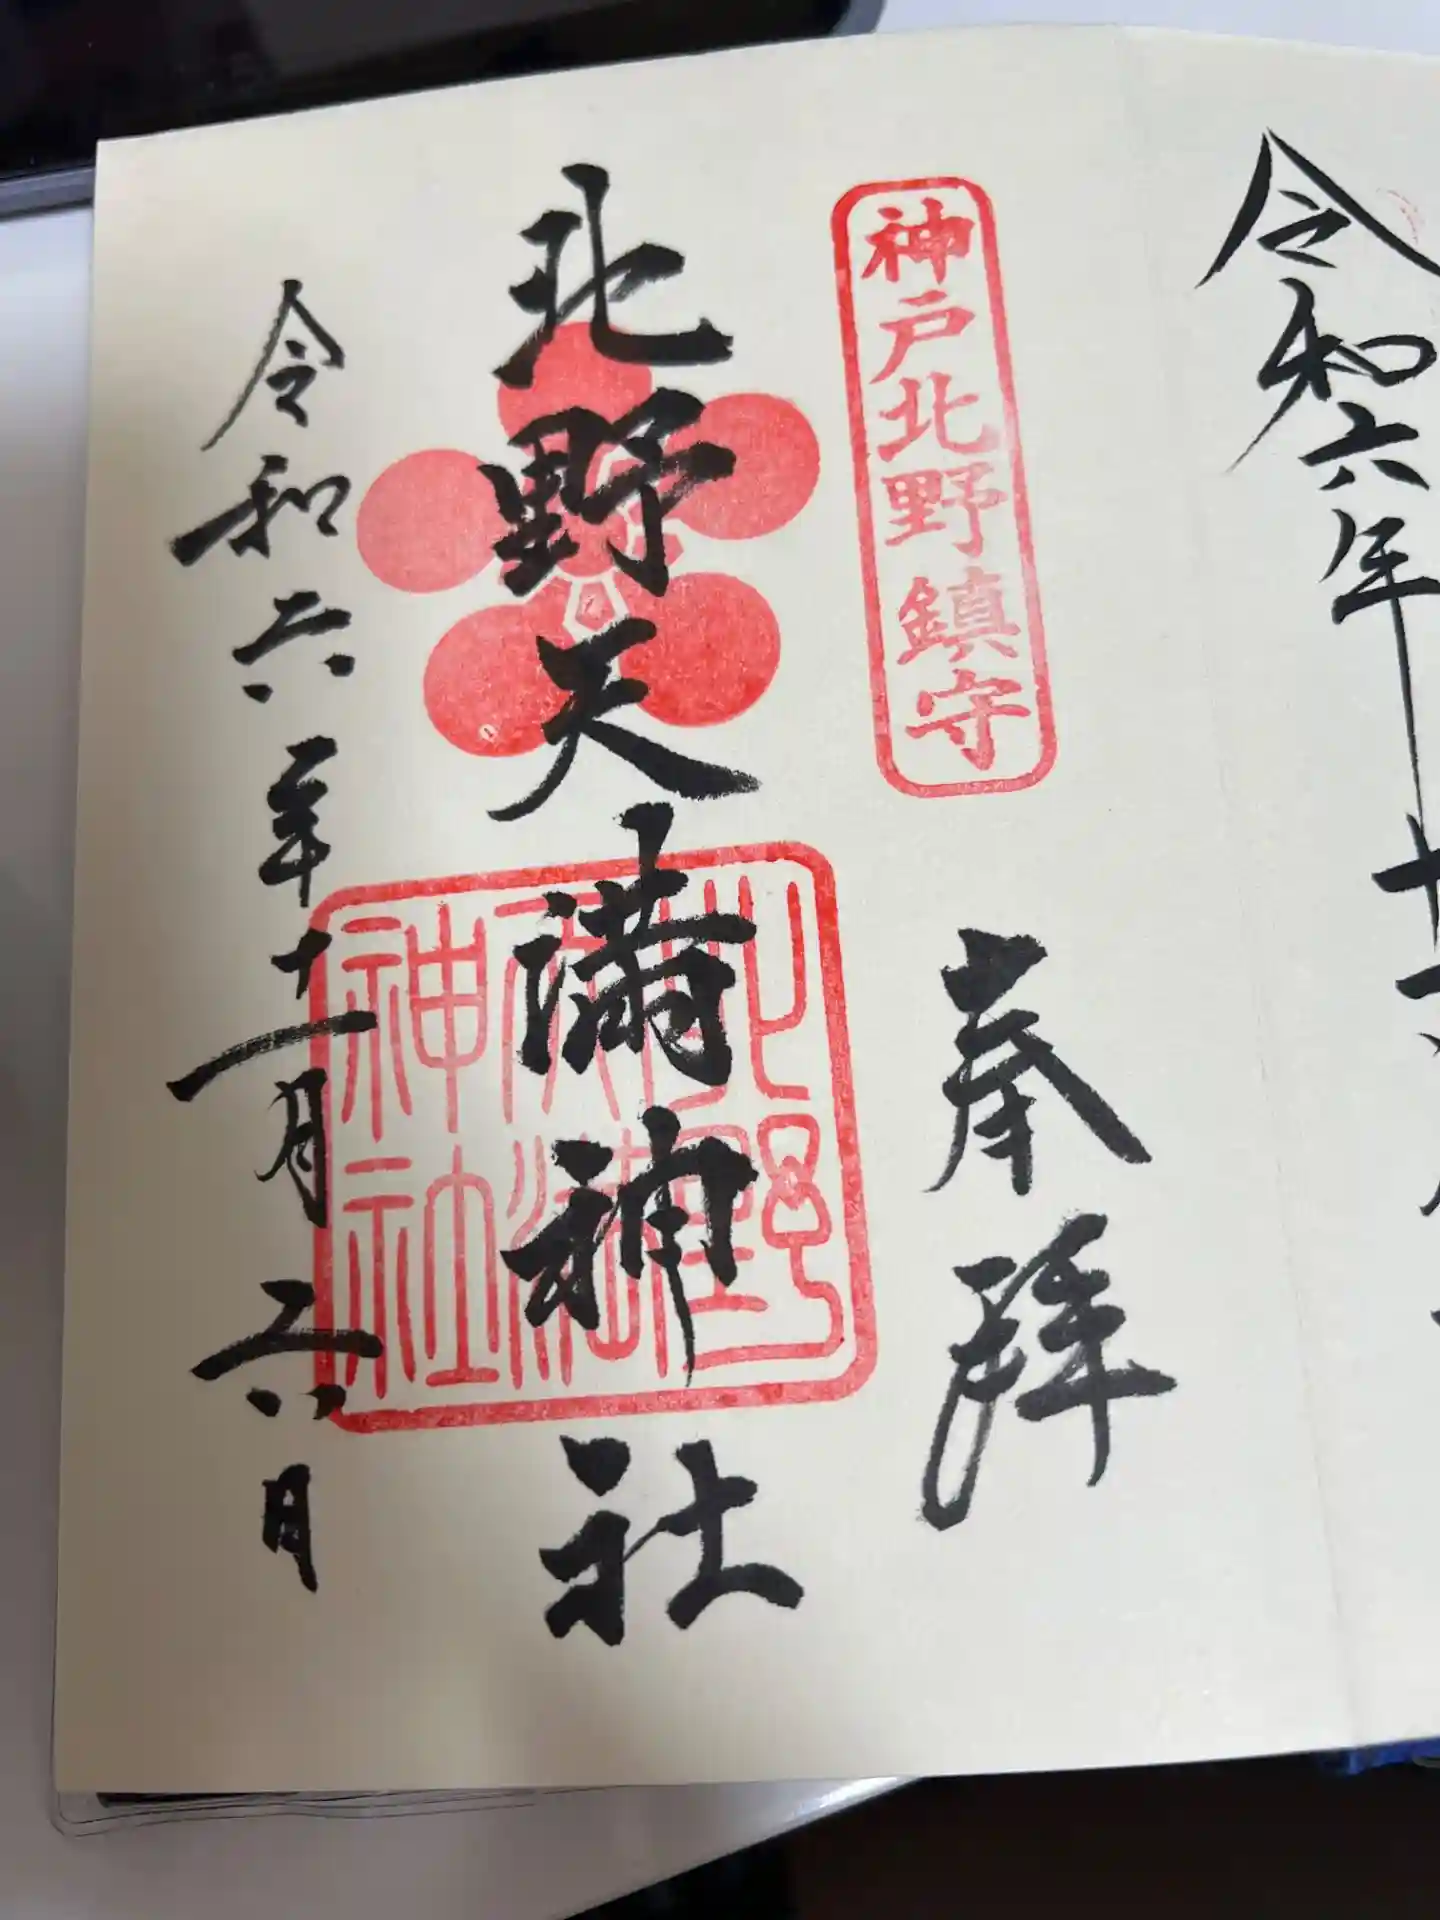 令和六年十
神戸北野鎮守
奉拝
北野天満神社
北野天満神社
令和六年十一月二六日